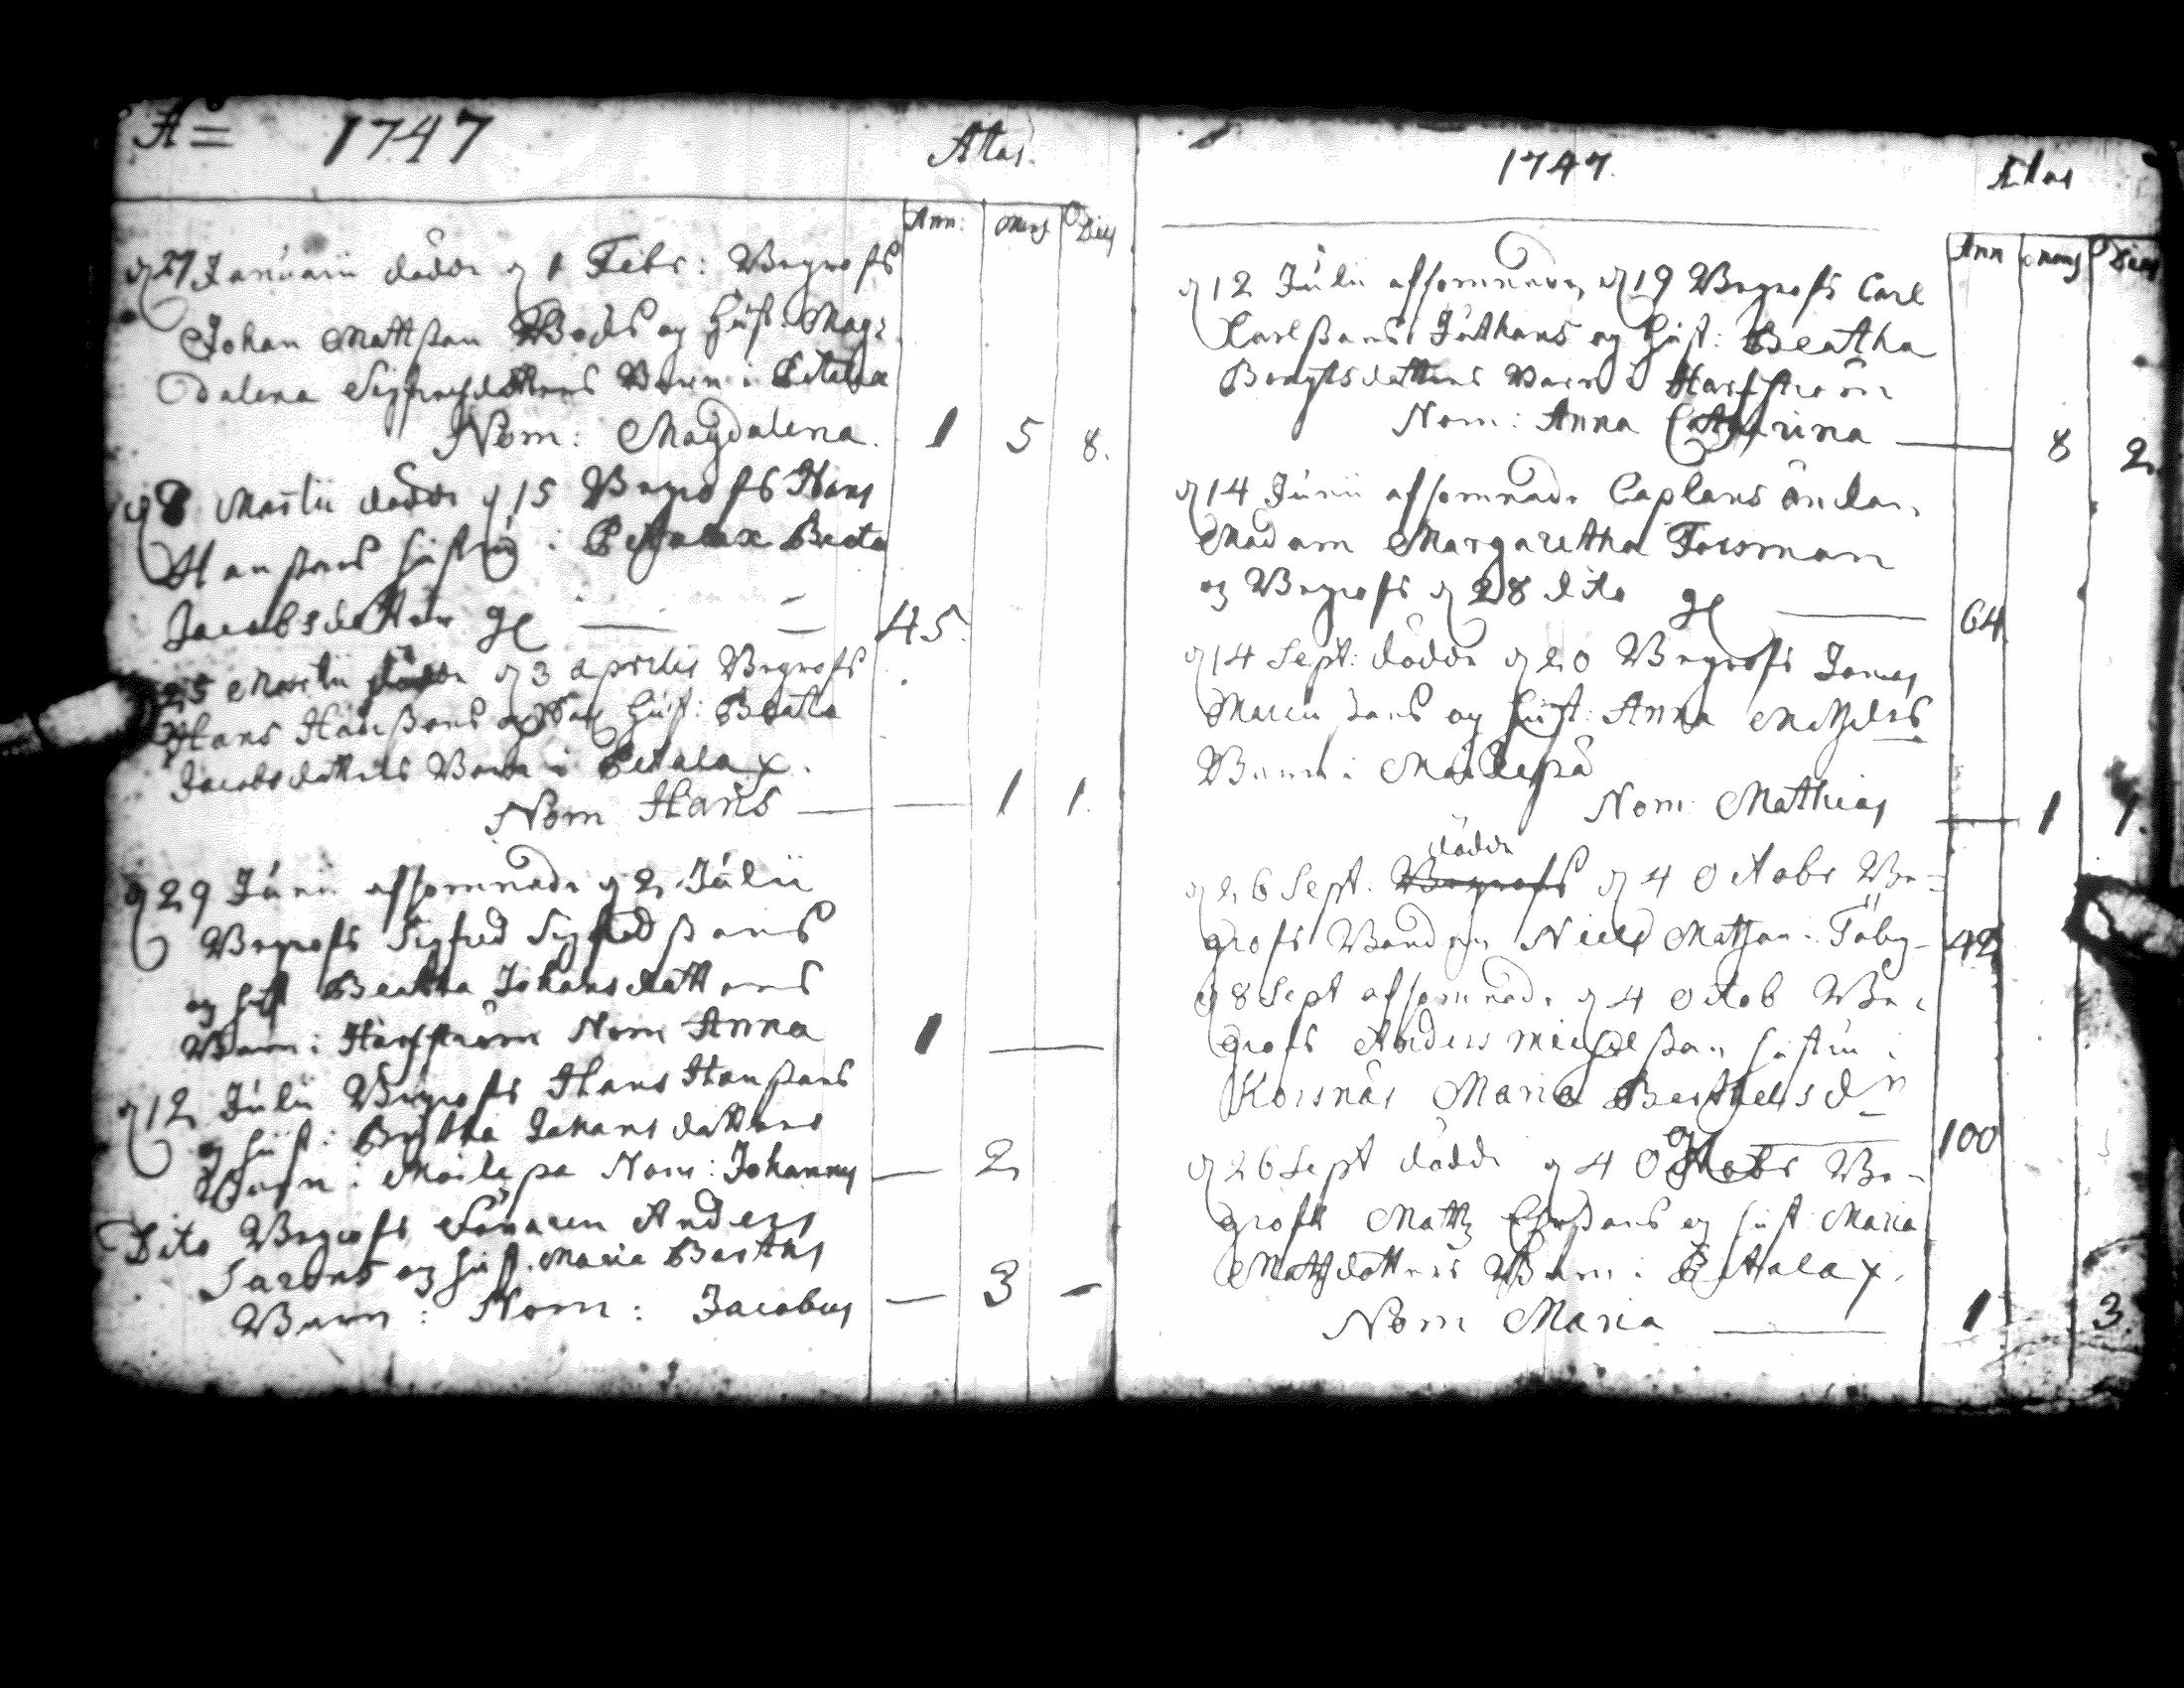 A= 1747 Ætas.
Ann: Mens Dies
d 27 Januarii dödde d 1 Febr: Begrofs
Johan Mattssan Bocks og Hust. Mag:
dalena Sigfredsdotters Barn i Petalax
Nom: Magdalena. 1 5 8.
d 8 Martii dödde d 15 Begrofs Hans
Hanssans hustru i Petalax Beata
Jacobsdotter gl — — 45.
25 Martii dödde d 3 aprilis Begrofs
Hans Hanssans og hust: Beata
Jacobsdotters Barn i Petalax.
Nom Hans — — 1 1.
d 29 Junii afsomnade d 2 Julii
Begrofs Sigfred Sigfredssans
og hust Beatha Johansdotters
Barn i Harfström Nom Anna 1 —
d 12 Julii Begrofs Hans Hanssans
og hust: Brytha Johansdotters
Barn i Moilepa Nom: Johannes — 2
Dito Begrofs Länsmen Anders
Sarens og hust. Maria Barthls
Barn: Nom: Jacobus — 3 —
1747. Ætas
Ann mens Dies
d 12 Julii afsomnade d 19 Begrofs Carl
Carlssans Juthans og hust: Beatha
Bengtsdotters Barn i Harfström
Nom: Anna Catharina — 8 2.
d 14 Junii afsomnade Caplans änckan
Madam Margaretha Forsman
og Begrofs d 28 dito gl — 64.
d 14 Sept: dödde d 20 Begrofs Jonas
Marcussans og hust: Anna Michels
Barn i Moilepå
Nom: Mathias — 1 1.
dödde
d 26 Sept. Begrofs d 4 Octobr Be=
grofs Bonden Niels Matsan i Töby— 42
d 8 Sept afsomnade d 4 Octob Be:
grofs Anders Michelssan hustru i
Korsnäs Maria Barthelsdn
gl — 100
d 26 Sept dödde d 4 Octobr Be-
grofs Matts Ersssans og hust Maria
Mattsdotters Barn i Petalax.
Nom Maria — 1 3.